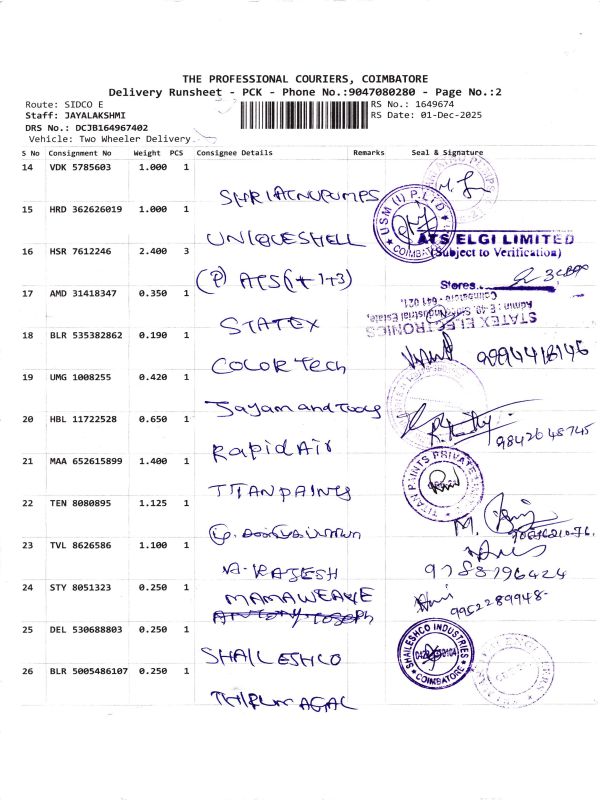 THE PROFESSIONAL COURIERS, COIMBATORE
Delivery Runsheet - PCK - Phone No.:9047080280 - Page No.:2
Route: SIDCO E
RS No.: 1649674
Staff: JAYALAKSHMI
RS Date: 01-Dec-2025
DRS No.: DCJB164967402
Vehicle: Two Wheeler Delivery
S No Consignment No Weight PCS Consignee Details Remarks Seal & Signature
14 VDK 5785603 1.000 1
15 HRD 362626019 1.000 1
USM (I) P.LTD
COIMBATORE
UNIQUESHELL
ATS ELGI LIMITED
(Subject to Verification)
16 HSR 7612246 2.400 3
(P) ATS (1+1+3)
Stores
17 AMD 31418347 0.350 1
STATEX
STATEX ELECTRONICS
Coimbatore - 641 021.
18 BLR 535382862 0.190 1
COLOR Tech
9994418146
19 UMG 1008255 0.420 1
Jayam and Tools
20 HBL 11722528 0.650 1
Rapid Air
9842648745
21 MAA 652615899 1.400 1
TITAN PAINTS
TITAN PAINTS PRIVATE
22 TEN 8080895 1.125 1
23 TVL 8626586 1.100 1
A. RAJESH
9788796424
24 STY 8051323 0.250 1
MAMAWEAVE
ANTONY JOSEPH
9952289948
25 DEL 530688803 0.250 1
SHAILESHCO
SHAILESHCO INDUSTRIES
COIMBATORE
26 BLR 5005486107 0.250 1
THIRUMAGAL